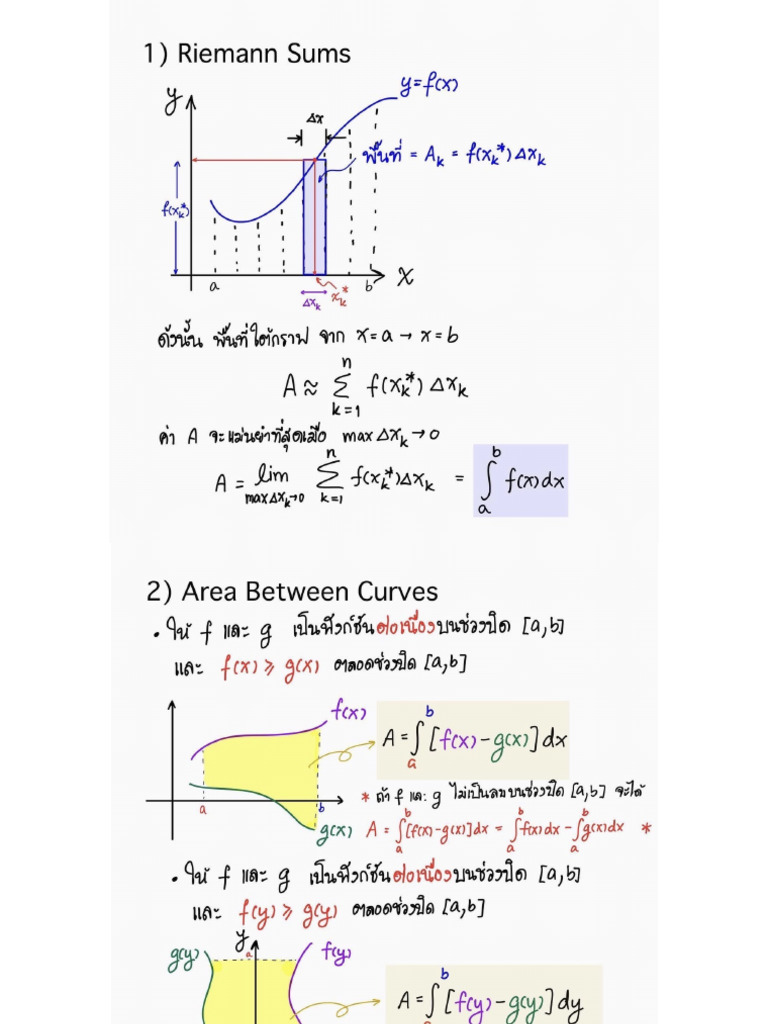 1) Riemann Sums
y
y=f(x)
Δx
พื้นที่ = Aₖ = f(xₖ*)Δxₖ
f(xₖ*)
a
b
x
Δxₖ
xₖ*
ดังนั้น พื้นที่ใต้กราฟ จาก x=a → x=b
A ≈ n Σ k=1 f(xₖ*) Δxₖ
ค่า A จะแม่นยำที่สุดเมื่อ max Δxₖ→0
A = lim max Δxₖ→0 n Σ k=1 f(xₖ*)Δxₖ = b ∫ a f(x)dx
2) Area Between Curves
• ให้ f และ g เป็นฟังก์ชันต่อเนื่องบนช่วงปิด [a,b]
และ f(x) ⩾ g(x) ตลอดช่วงปิด [a,b]
f(x)
A = b ∫ a [f(x)-g(x)]dx
a
b
g(x)
* ถ้า f และ g ไม่เป็นลบบนช่วงปิด [a,b] จะได้
A = b ∫ a [f(x)-g(x)]dx = b ∫ a f(x)dx - b ∫ a g(x)dx *
• ให้ f และ g เป็นฟังก์ชันต่อเนื่องบนช่วงปิด [a,b]
และ f(y) ⩾ g(y) ตลอดช่วงปิด [a,b]
g(y)
y
a
f(y)
A = b ∫ a [f(y)-g(y)]dy